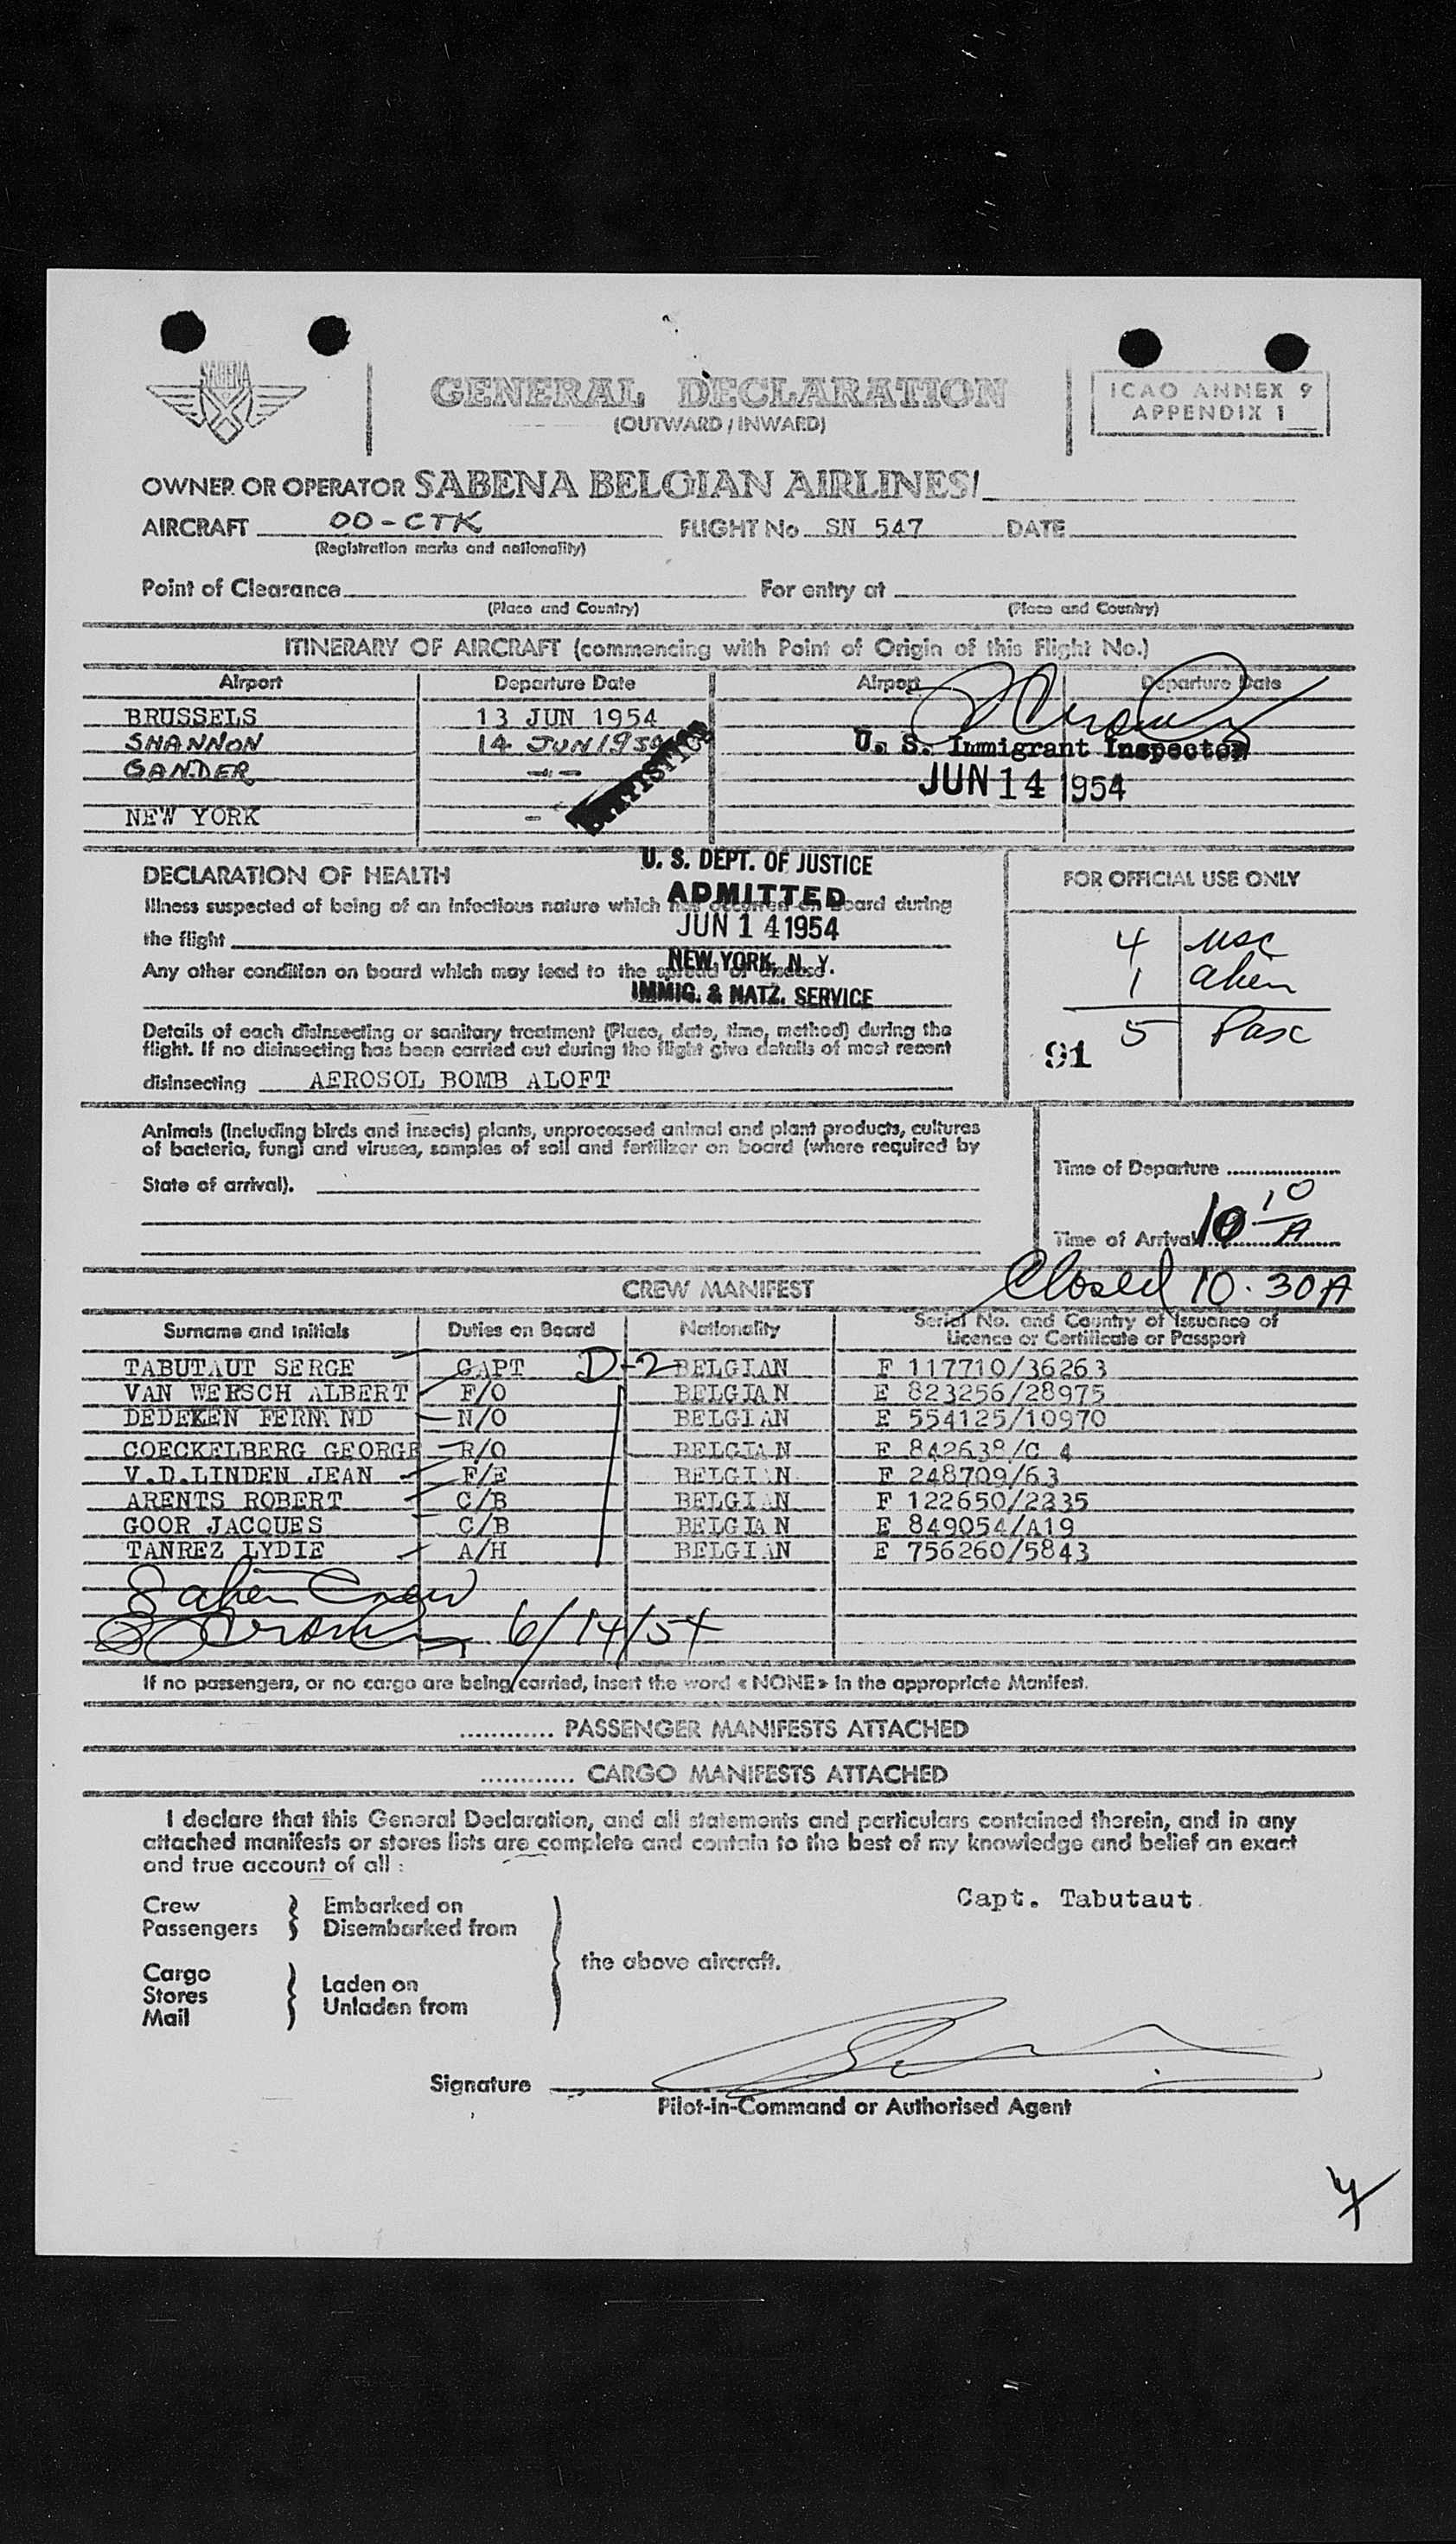 SABENA
GENERAL DECLARATION
(OUTWARD / INWARD)
ICAO ANNEX 9
APPENDIX 1
OWNER OR OPERATOR SABENA BELGIAN AIRLINES
AIRCRAFT OO-CTK FLIGHT No SN 547 DATE
(Registration marks and nationality)
Point of Clearance For entry at
(Place and Country) (Place and Country)
ITINERARY OF AIRCRAFT (commencing with Point of Origin of this Flight No.)
Airport Departure Date Airport Departure Date
BRUSSELS 13 JUN 1954
SHANNON 14 JUN 1954
GANDER -"-
NEW YORK -
STATISTICS
U. S. Immigrant Inspector
JUN 14 1954
U. S. DEPT. OF JUSTICE
ADMITTED
JUN 14 1954
NEW YORK, N. Y.
IMMIG. & NATZ. SERVICE
DECLARATION OF HEALTH
Illness suspected of being of an infectious nature which has occurred on board during
the flight
Any other condition on board which may lead to the spread of disease.
Details of each disinsecting or sanitary treatment (Place, date, time, method) during the
flight. If no disinsecting has been carried out during the flight give details of most recent
disinsecting AEROSOL BOMB ALOFT
FOR OFFICIAL USE ONLY
4 usc
1 alien
5 Pasc
91
Animals (including birds and insects) plants, unprocessed animal and plant products, cultures
of bacteria, fungi and viruses, samples of soil and fertilizer on board (where required by
State of arrival).
Time of Departure
Time of Arrival 10 10 A
Closed 10.30 A
CREW MANIFEST
Surname and Initials Duties on Board Nationality Serial No. and Country of Issuance of
Licence or Certificate or Passport
TABUTAUT SERGE CAPT D-2 BELGIAN F 117710/36263
VAN WERSCH ALBERT F/O BELGIAN E 823256/28975
DEDEKEN FERNAND N/O BELGIAN E 554125/10970
COECKELBERG GEORGE R/O BELGIAN E 842638/C 4
V.D.LINDEN JEAN F/E BELGIAN F 248709/63
ARENTS ROBERT C/B BELGIAN F 122650/2235
GOOR JACQUES C/B BELGIAN E 849054/A19
TANREZ LYDIE A/H BELGIAN E 756260/5843
8 alien Crew
6/14/54
If no passengers, or no cargo are being carried, insert the word « NONE » in the appropriate Manifest.
............ PASSENGER MANIFESTS ATTACHED
............ CARGO MANIFESTS ATTACHED
I declare that this General Declaration, and all statements and particulars contained therein, and in any
attached manifests or stores lists are complete and contain to the best of my knowledge and belief an exact
and true account of all :
Capt. Tabutaut.
Crew Embarked on
Passengers Disembarked from
the above aircraft.
Cargo
Stores Laden on
Mail Unladen from
Signature
Pilot-in-Command or Authorised Agent
4